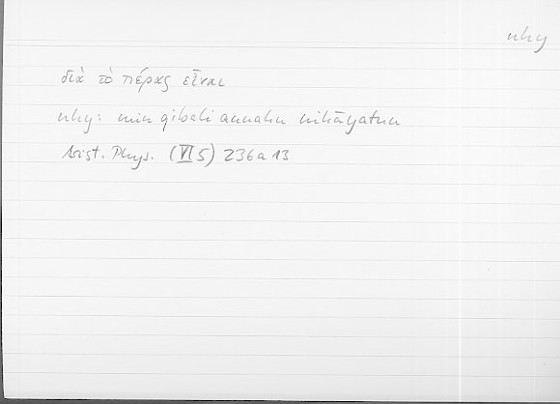 nhy
διὰ τὸ πέρας εἶναι
nhy: min qibali annahu nihāyatun
Arist. Phys. (VI 5) 236a13